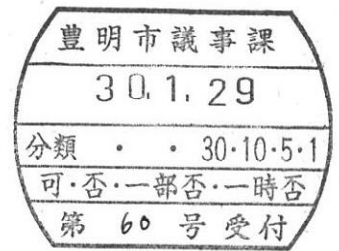 豊明市議事課
30.1.29
分類 ・ ・ 30・10・5・1
可・否・一部否・一時否
第 60 号受付